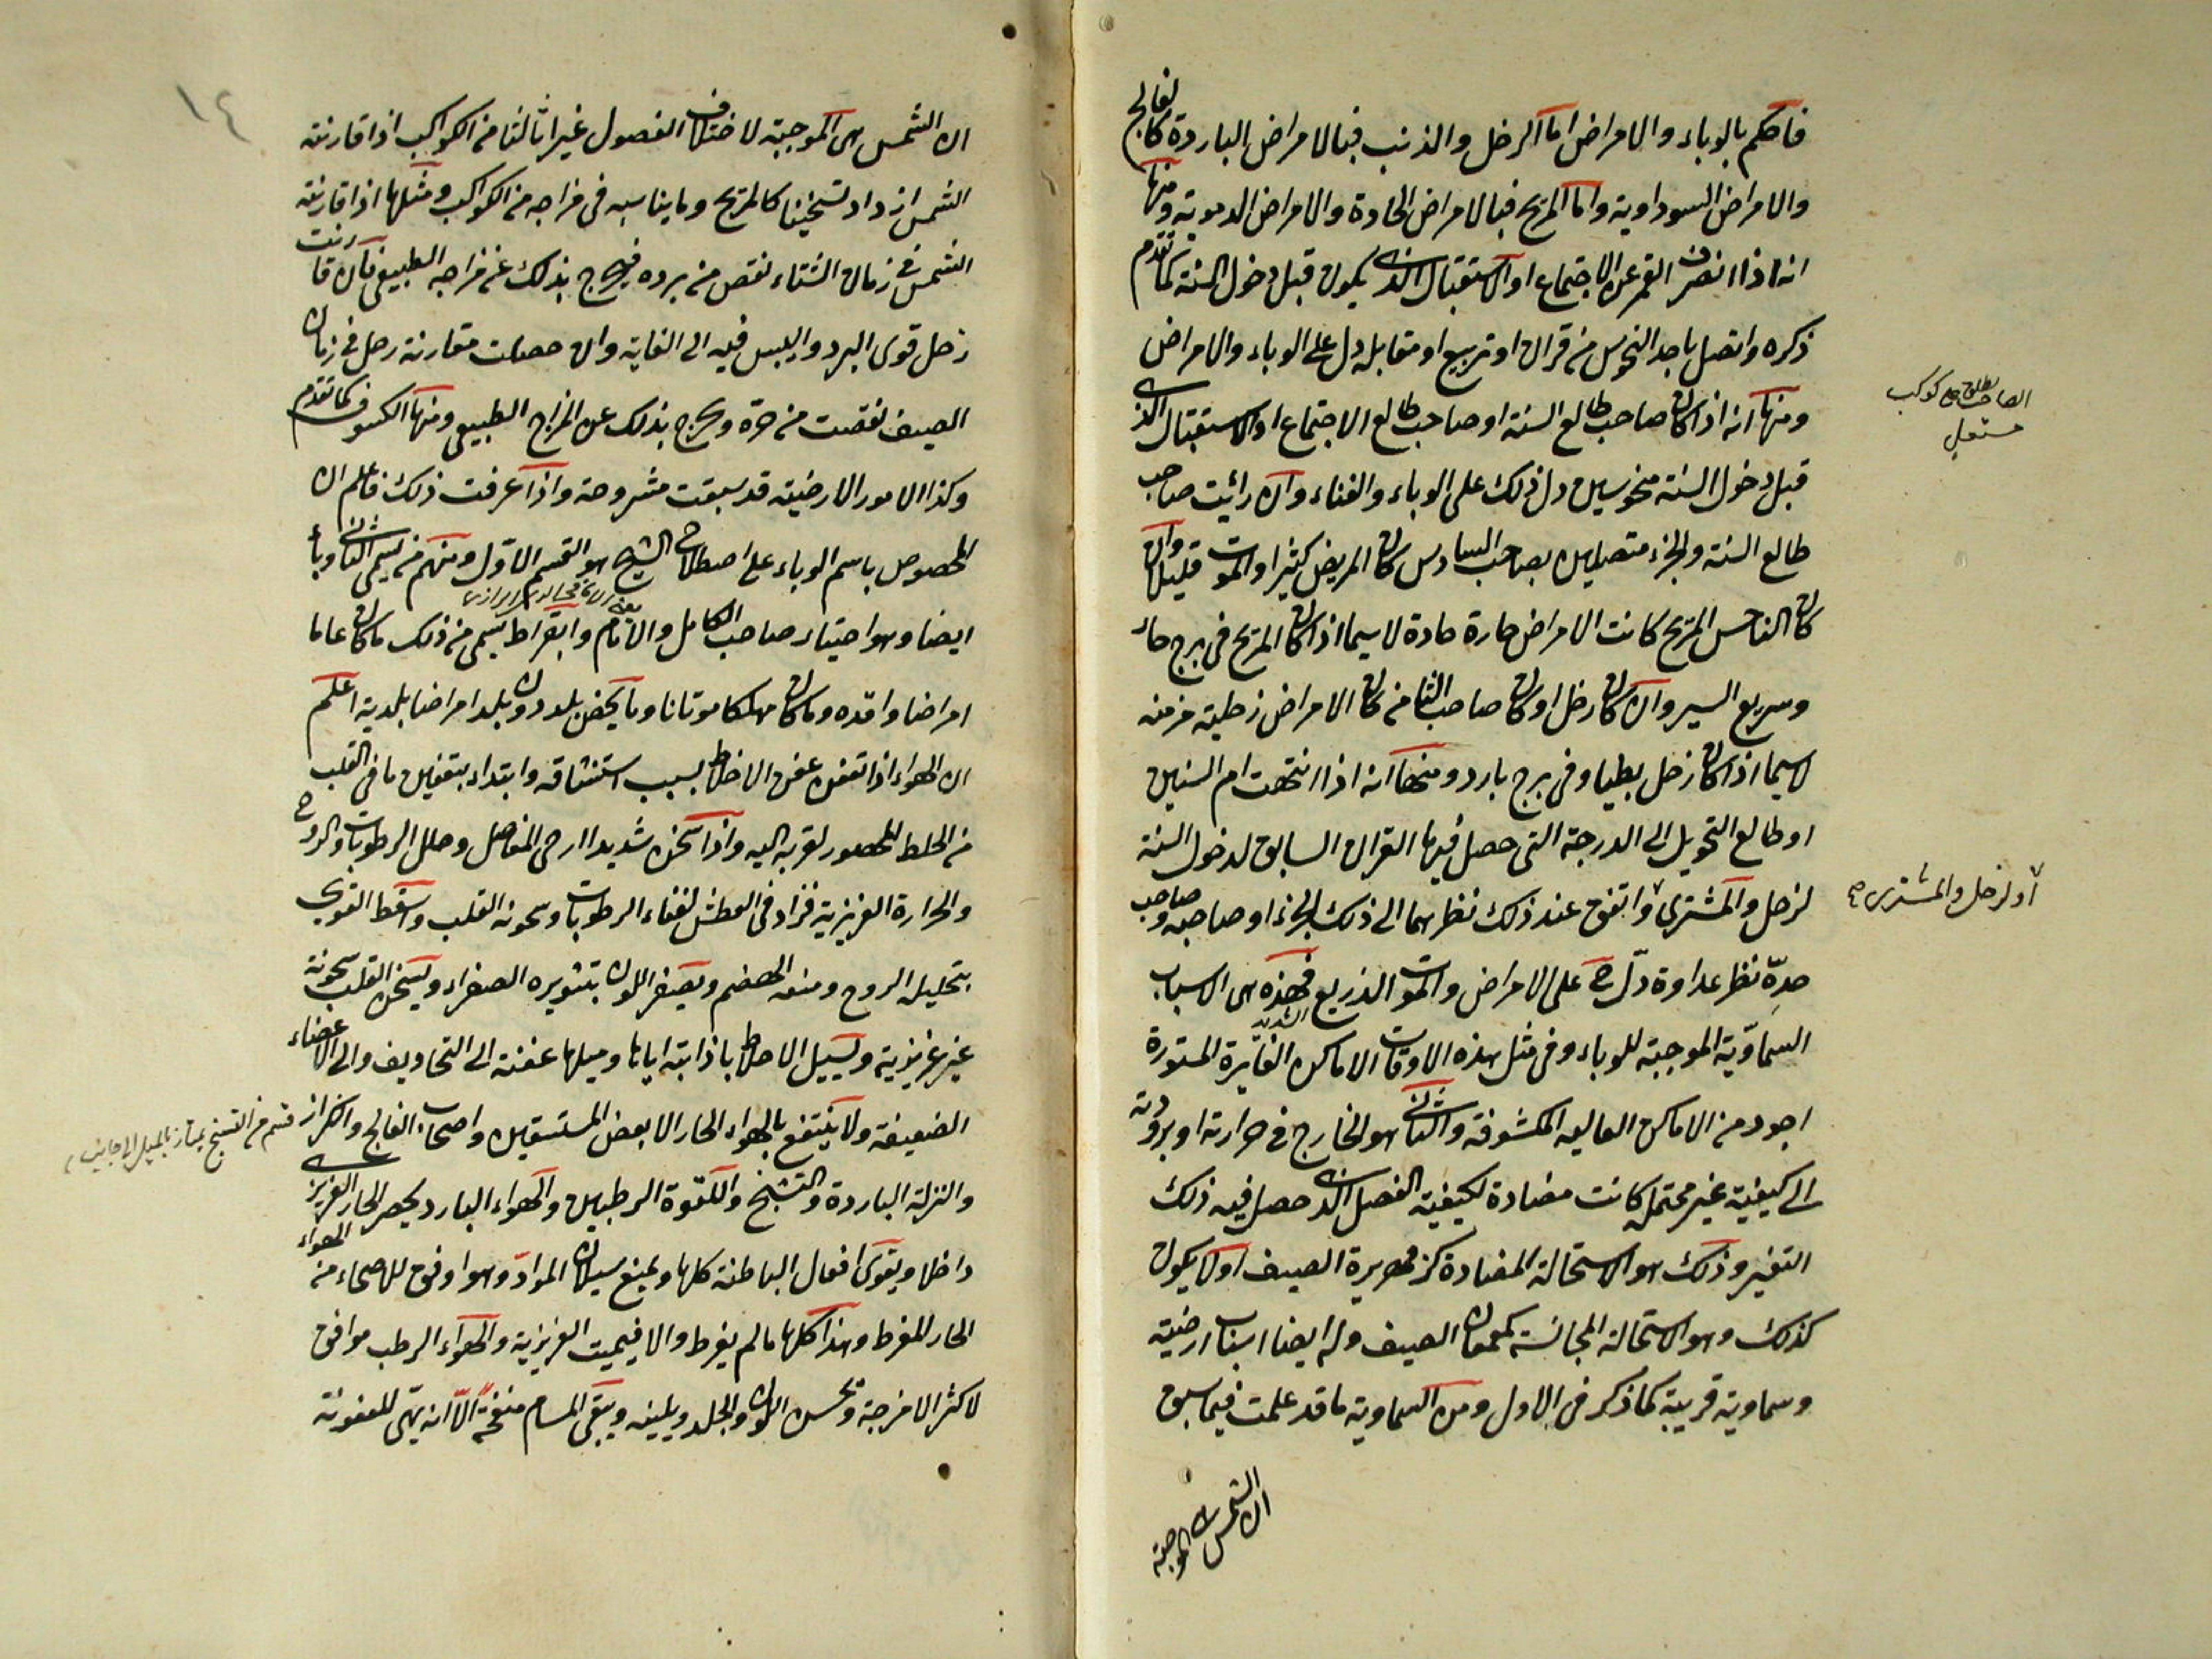 فاحكم بالوباء والامراض اما الزحل والذنب فبالامراض الباردة كالفالج
والامراض السوداوية واما المريخ فبالامراض الحادة والامراض الدموية ومنها
انه اذا انصرف القمر عن الاجتماع او الاستقبال الذى يكون قبل دخول السنة كما تقدم
ذكره واتصل باحد النحوس من قران او تربيع او مقابلة دل على الوباء والامراض
ومنها انه اذا كان صاحب طالع السنة او صاحب طالع الاجتماع او الاستقبال الذى
قبل دخول السنة منحوسين دل ذلك على الوباء والفناء وان رائيت صاحب
طالع السنة والجزء متصلين بصاحب السادس كان المريض كثيرا والموت قليلا وان
كان الناحس المريخ كانت الامراض حارة حادة لاسيما اذا كان المريخ فى برج حار
وسريع السير وان كان زحل او كان صاحب الثامن كان الامراض زحلية مزمنة
لاسيما اذا كان زحل بطيا وفى برج بارد ومنها انه اذا انتهت ام السنين
او طالع التحويل الى الدرجة التى حصل فيها القران السابق لدخول السنة
لزحل والمشترى واتفق عند ذلك نظرهما الى ذلك الجزء او صاحبه وصاحب
حدّه نظر عداوة دلّ ح على الامراض والموت الذريع فهذه هى الاسباب
السماوّية الموجبة للوباء وفى مثل هذه الاوقات الاماكن الغايرة المستورة
الشديد
اجود من الاماكن العاليه المكشوفة والثانى هو الخارج فى حرارته او برودته
الى كيفية غير محتملة كانت مضادة لكيفية الفصل الذى حصل فيه ذلك
التغير وذلك هو الاستحالة المضادة كزمهريرة الصيف اولا يكون
كذلك وهو الاستحالة المجانسة كمعمعان الصيف وله ايضا اسباب ارضية
وسماوية قريبة كما ذكر فى الاول ومن السماوية ما قد علمت فيما سبق
ان الشمس هى الموجبة
الصاحب يطلق على كوكب
مستعلى
او لزحل والمشترى
١٤
ان الشمس هى الموجبة لاختلاف الفصول غير ان الثامن الكواكب اذا قارنته
الشمس ازداد تسخينا كالمريخ وما يناسبه فى مزاجه من الكواكب ومثلها اذا قارنته
الشمس فى زمان الشتاء نقص من برده فيخرج بذلك عن مزاجه الطبيعى فان قارنت
زحل قوى البرد واليبس فيه الى الغاية وان حصلت مقارنة زحل فى زمان
الصيف نقصت من حرّه ويخرج بذلك عن المزاج الطبيعى ومنها الكسوف كما تقدم
وكذا الامور الارضية قد سبقت مشروحة واذا عرفت ذلك فاعلم ان
المخصوص باسم الوباء على اصطلاح الشيخ هو القسم الاول ومنهم من يسمى الثانى وباء
ايضا وهو اختيار صاحب الكامل والامام وابقراط يسمى من ذلك ما كان عاما
امراضا وافده وما كان مهلكا موتانا وما يخص بلد دون بلد امراضا بلدية اعلم
ان الهواء اذا تعفن عفن الاخلاط بسبب استنشاقه وابتداء بتعفين ما فى القلب
من الخلط المحصور لقربه اليه واذا سخن شديدا ارخى المفاصل وحلل الرطوبات والروح
والحرارة الغريزية فزاد فى العطش لفناء الرطوبات وسخونه القلب واسقط القوى
بتحليل الروح ومنع الهضم ويصفر اللون بتثويره الصفراء ويسخن القلب سخونة
غير غريزية ويسيل الاخلاط باذابته اياها وميلها عفنة الى التجاويف والى الاعضاء
الضعيفة ولا ينتفع بالهواء الحار الا بعض المستسقين واصحاب الفالج والكزاز
والنزلة الباردة والتشنج واللقوة الرطبين والهواء البارد يحصر الحار الغريزى
داخلا ويقوى افعال الباطنة كلها ويمنع سيلان المواد وهو اوفق للاصحاء من الهواء
الحار المفرط وهذا كلها مالم يفرط والا فيميت الغريزية والهواء الرطب موافق
لاكثر الامزجة ويحسن اللون والجلد ويلينه ويبقى المسام منفتحة الّا انه يهّئ للعفونة
قسم من التشنج يمتاز بالميل الى جانبين